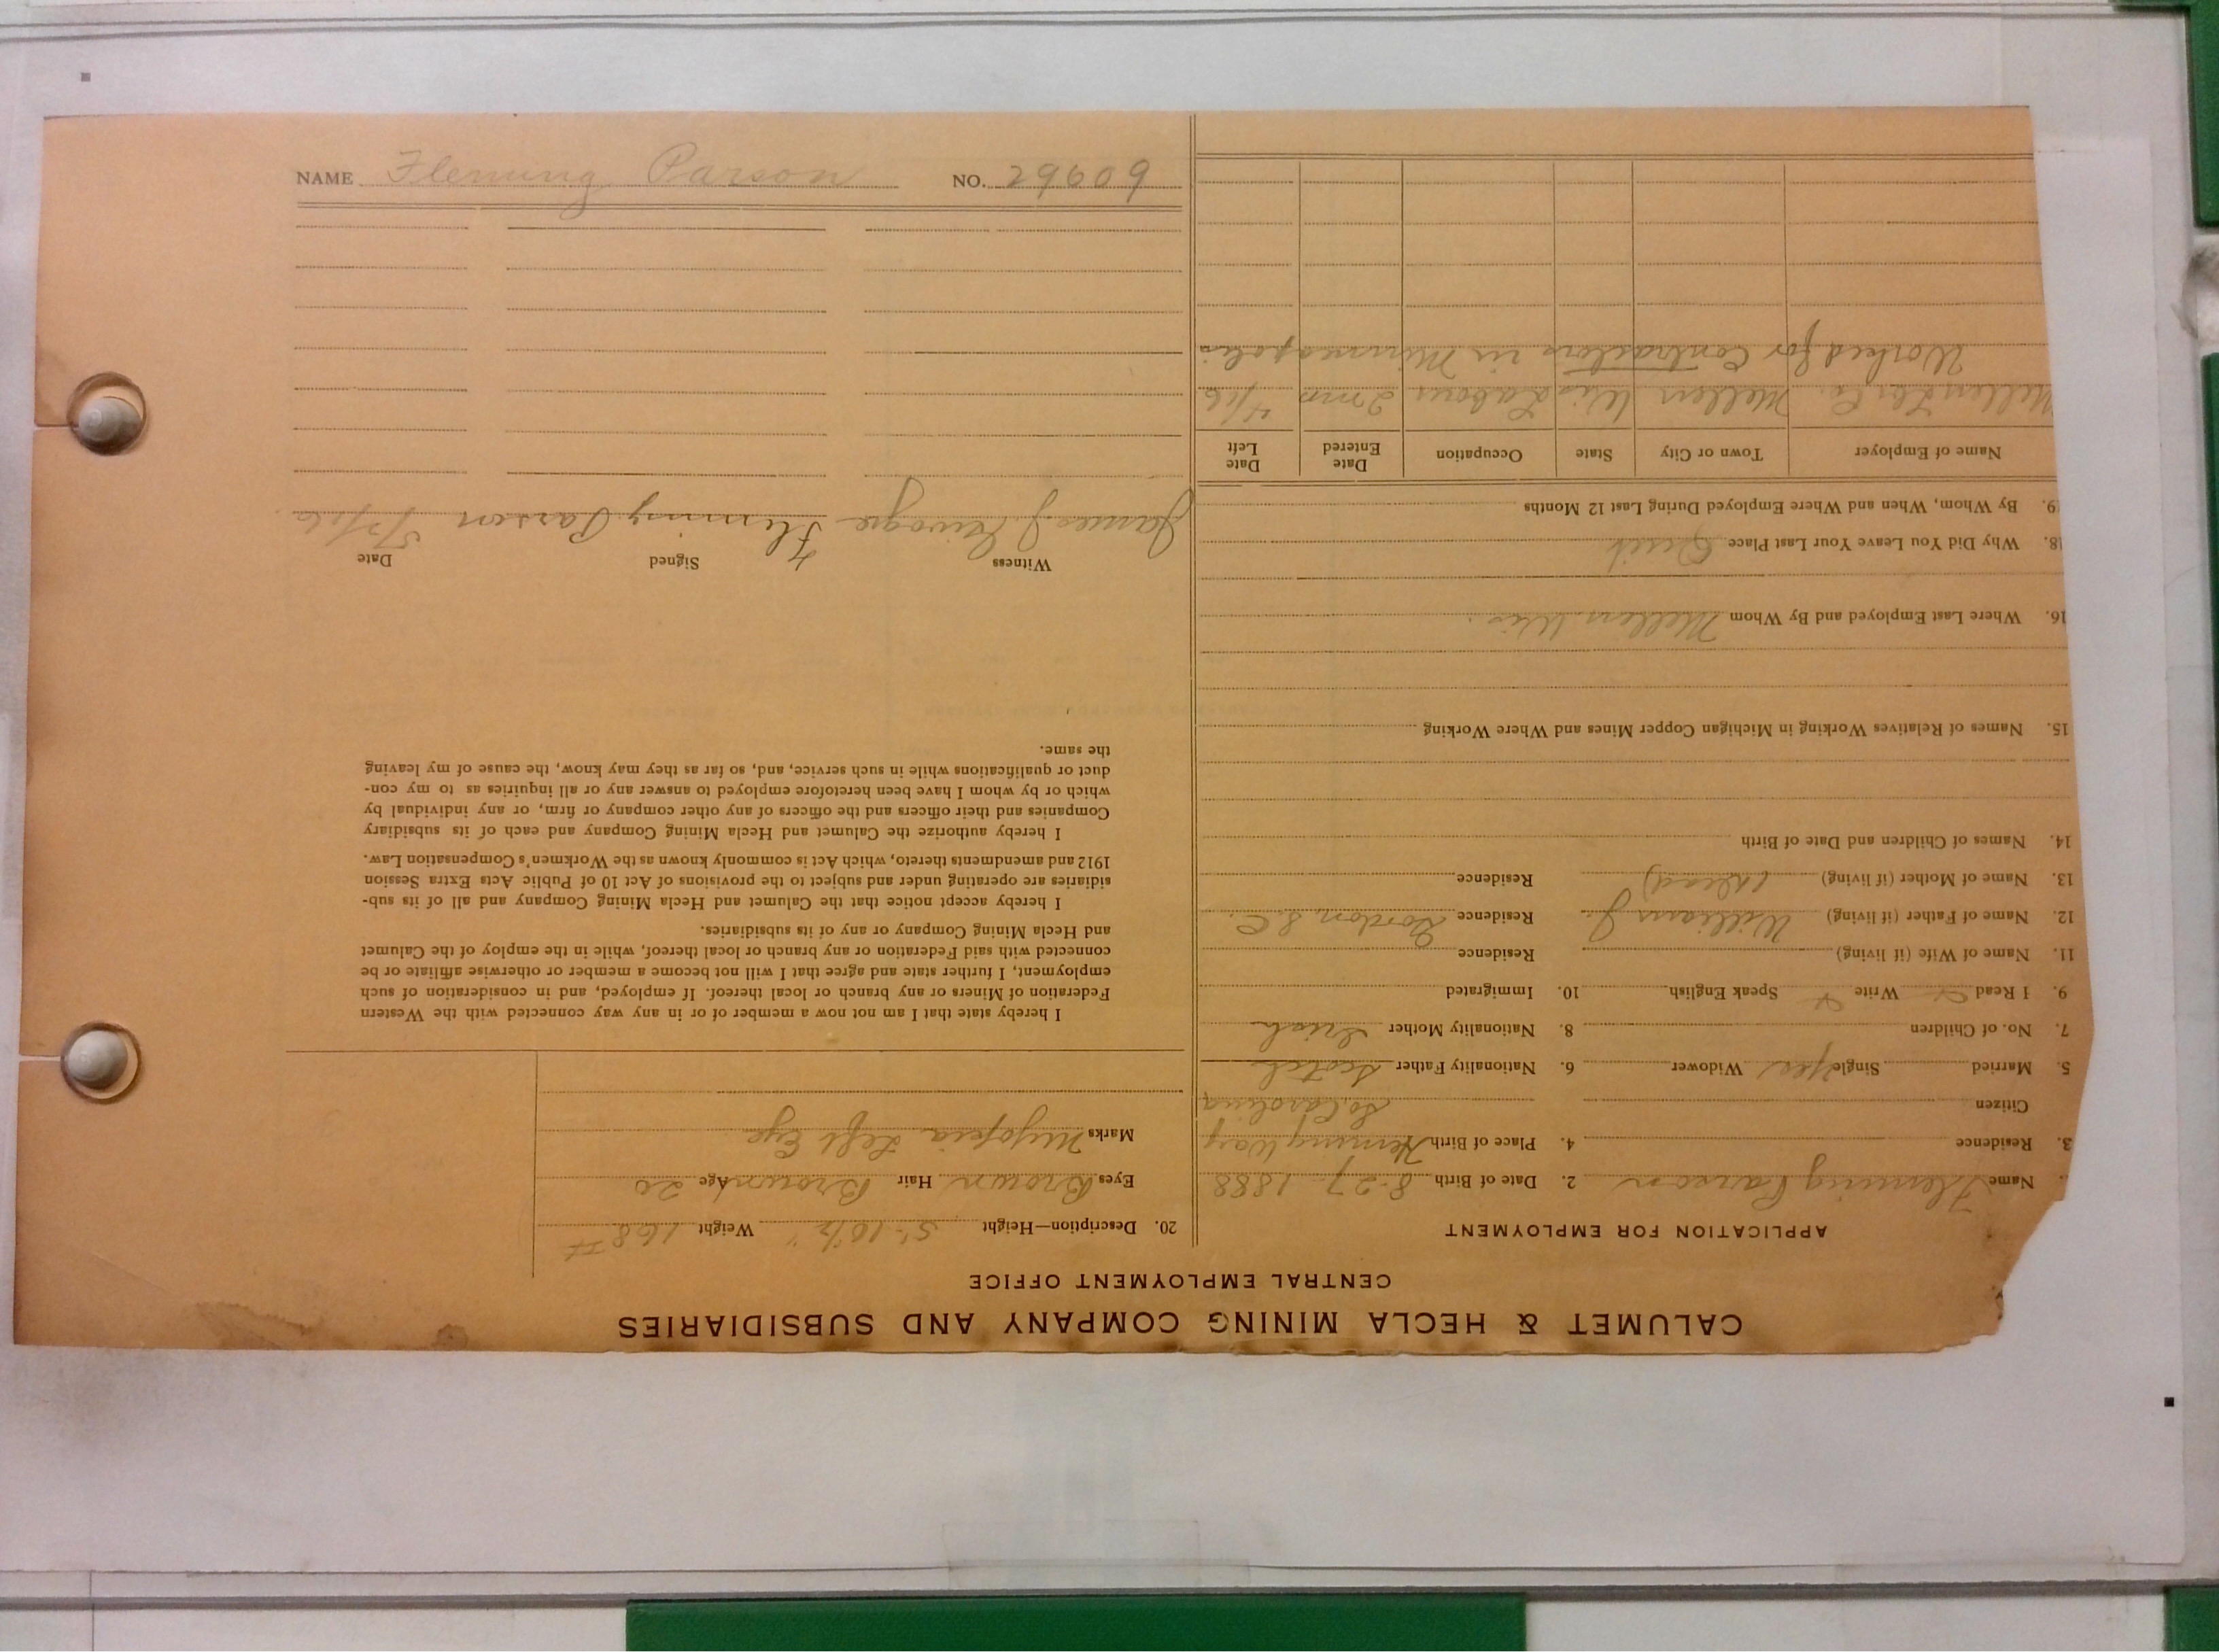 CALUMET & HECLA MINING COMPANY AND SUBSIDIARIES
CENTRAL EMPLOYMENT OFFICE
APPLICATION FOR EMPLOYMENT
Name Fleming Parson 2. Date of Birth 8-27-1888
3. Residence 4. Place of Birth Heming Way
Citizen So. Carolina
5. Married Single Yes Widower 6. Nationality Father Scotch
7. No. of Children 8. Nationality Mother Irish
9. I Read Write Speak English 10. Immigrated
11. Name of Wife (if living) Residence
12. Name of Father (if living) William J. Residence Gordon, S.C.
13. Name of Mother (if living) (Dead) Residence
14. Names of Children and Date of Birth
15. Names of Relatives Working in Michigan Copper Mines and Where Working
16. Where Last Employed and By Whom Mellen Wis.
18. Why Did You Leave Your Last Place Quit
19. By Whom, When and Where Employed During Last 12 Months
Name of Employer Town or City State Occupation Date Entered Date Left
Mellen Lbr Co. Mellen Wis Labour 2 mo 4/16
Worked for Contractors in Minneapolis
20. Description—Height 5'-10 1/2" Weight 168 #
Eyes Brown Hair Brown Age 26
Marks Myopia Left Eye
I hereby state that I am not now a member of or in any way connected with the Western
Federation of Miners or any branch or local thereof. If employed, and in consideration of such
employment, I further state and agree that I will not become a member or otherwise affiliate or be
connected with said Federation or any branch or local thereof, while in the employ of the Calumet
and Hecla Mining Company or any of its subsidiaries.
I hereby accept notice that the Calumet and Hecla Mining Company and all of its sub-
sidiaries are operating under and subject to the provisions of Act 10 of Public Acts Extra Session
1912 and amendments thereto, which Act is commonly known as the Workmen's Compensation Law.
I hereby authorize the Calumet and Hecla Mining Company and each of its subsidiary
Companies and their officers and the officers of any other company or firm, or any individual by
which or by whom I have been heretofore employed to answer any or all inquiries as to my con-
duct or qualifications while in such service, and, so far as they may know, the cause of my leaving
the same.
Witness Signed Date
James J. Fleming Parson 5/5/16
NAME Fleming Parson NO. 29609